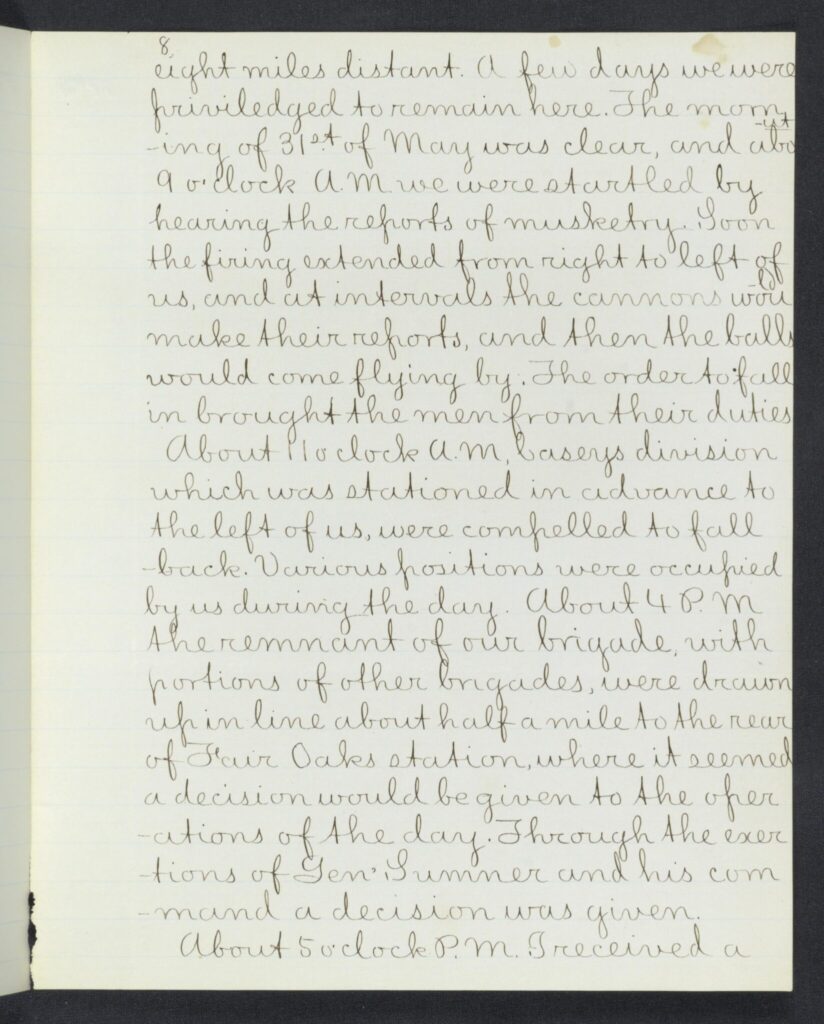 8
eight miles distant. A few days we were
priviledged to remain here. The morn
-ing of 31st of May was clear, and abo-ut
9 o'clock A.M. we were startled by
hearing the reports of musketry. Soon
the firing extended from right to left of
us, and at intervals the cannons would
make their reports, and then the balls
would come flying by. The order to fall
in brought the men from their duties
About 11 o clock A.M, Caseys division
which was stationed in advance to
the left of us, were compelled to fall
-back. Various positions were occupied
by us during the day. About 4 P. M
the remnant of our brigade, with
portions of other brigades, were drawn
up in line about half a mile to the rear
of Fair Oaks station, where it seemed
a decision would be given to the oper
-ations of the day. Through the exer
-tions of Gen' Sumner and his com
-mand a decision was given.
About 5 o'clock P. M. I received a